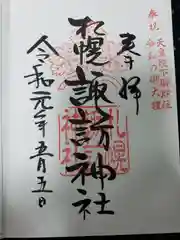 奉祝 天皇陛下御即位
令和の御大禮
奉拝
札幌諏訪神社
令和元年五月五日